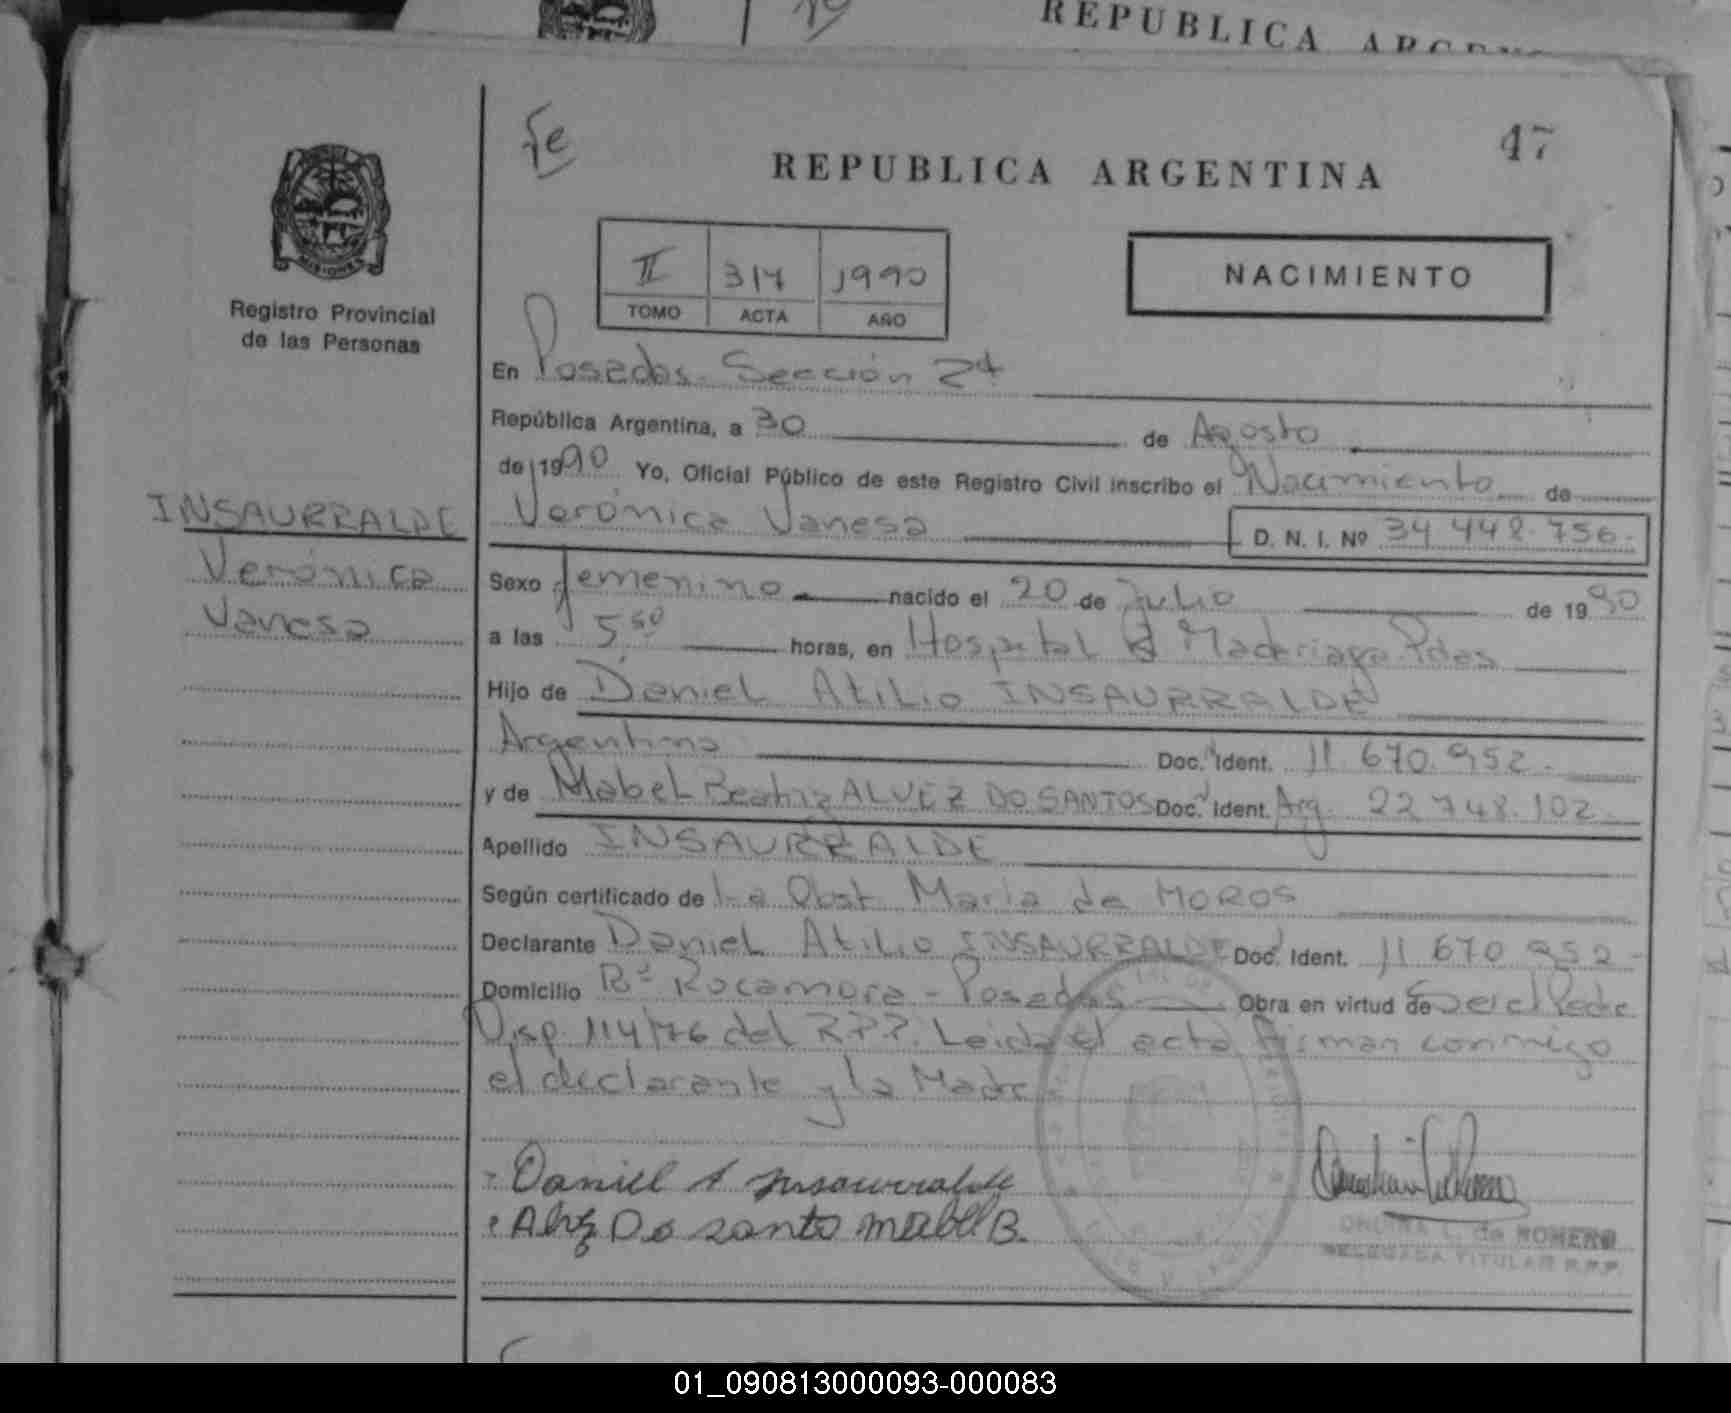 REPUBLICA
MISIONES
Registro Provincial
de las Personas
INSAURRALDE
Verónica
Vanesa
47
REPUBLICA ARGENTINA
II 317 1990
TOMO ACTA AÑO
NACIMIENTO
En Posadas. Sección 2ª
República Argentina, a 30 de Agosto
de 1990 Yo, Oficial Público de este Registro Civil inscribo el Nacimiento de
Verónica Vanesa D. N. I. Nº 34 448.756.
Sexo femenino nacido el 20 de Julio de 1990
a las 5 50 horas, en Hospital Madariaga Pdas
Hijo de Daniel Atilio INSAURRALDE
Argentino Doc. Ident. 11 670.952.
y de Mabel Beatriz ALVEZ DO SANTOS Doc. Ident. Arg. 22 748.102.
Apellido INSAURRALDE
Según certificado de La Obst María de MOROS
Declarante Daniel Atilio INSAURRALDE Doc. Ident. 11 670 952
Domicilio Bº Rocamora - Posadas Obra en virtud de Ser el Padre
Disp. 114/76 del R.P.P. Leida el acta firman conmigo
el declarante y la Madre
Daniel A Insaurralde
Alvez Do santo mabel B.
L. de ROMERO
DELEGADA TITULAR R.P.P.
01_090813000093-000083